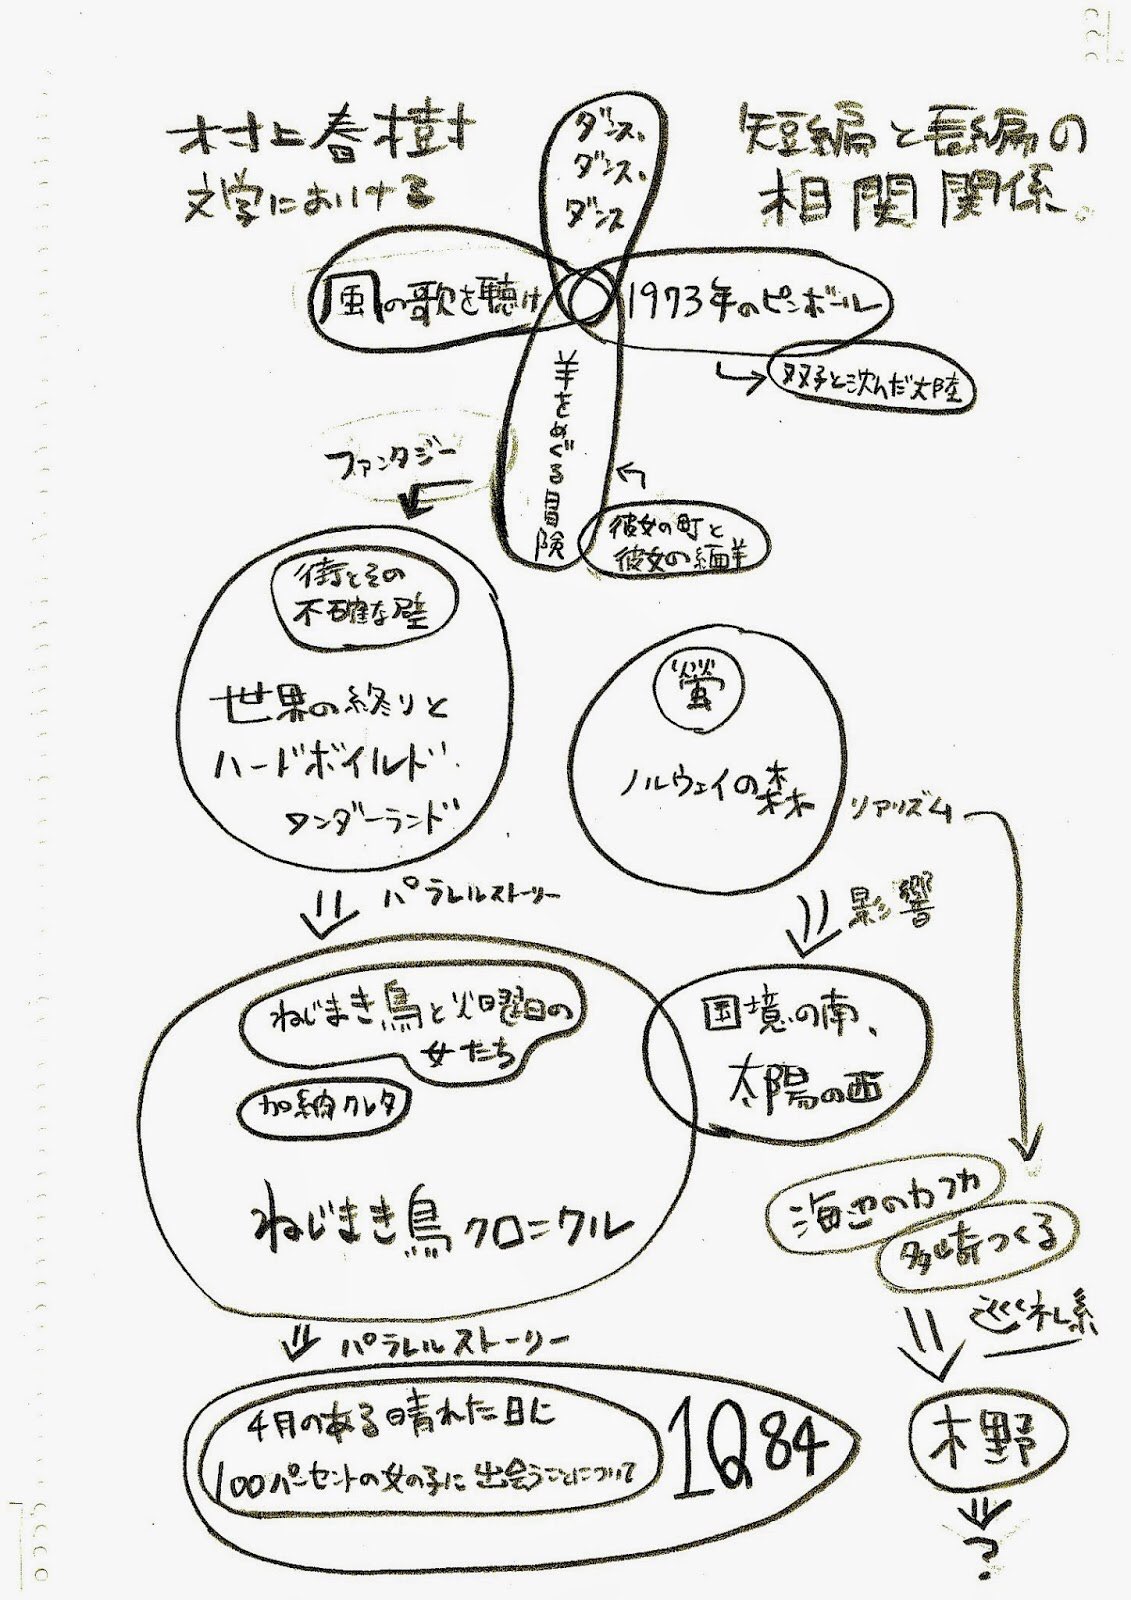 村上春樹
文学における
短編と長編の
相関関係。
ダンス、
ダンス、
ダンス
風の歌を聴け
1973年のピンボール
双子と沈んだ大陸
羊をめぐる冒険
ファンタジー
彼女の町と
彼女の緬羊
街とその
不確な壁
世界の終りと
ハードボイルド
ワンダーランド
螢
ノルウェイの森
リアリズム
パラレルストーリー
影響
ねじまき鳥と火曜日の
女たち
加納クレタ
ねじまき鳥クロニクル
国境の南、
太陽の西
海辺のカフカ
多崎つくる
巡礼系
パラレルストーリー
4月のある晴れた日に
100パーセントの女の子に出会うことについて
1Q84
木野
?